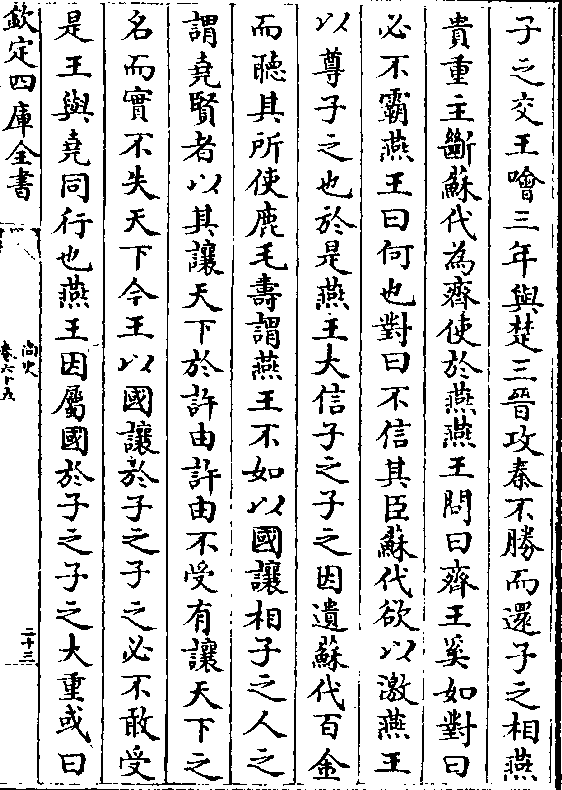 子之交王噲三年與楚三晉攻秦不勝而還子之相燕
貴重主斷蘇代為齊使於燕燕王問曰齊王奚如對曰
必不霸燕王曰何也對曰不信其臣蘇代欲以激燕王
以尊子之也於是燕王大信子之子之因遺蘇代百金
而聽其所使鹿毛壽謂燕王不如以國讓相子之人之
謂堯賢者以其讓天下於許由許由不受有讓天下之
名而實不失天下今王以國讓於子之子之必不敢受
是王與堯同行也燕王因屬國於子之子之大重或曰
欽定四庫全書
尚史
卷六十五
二十三